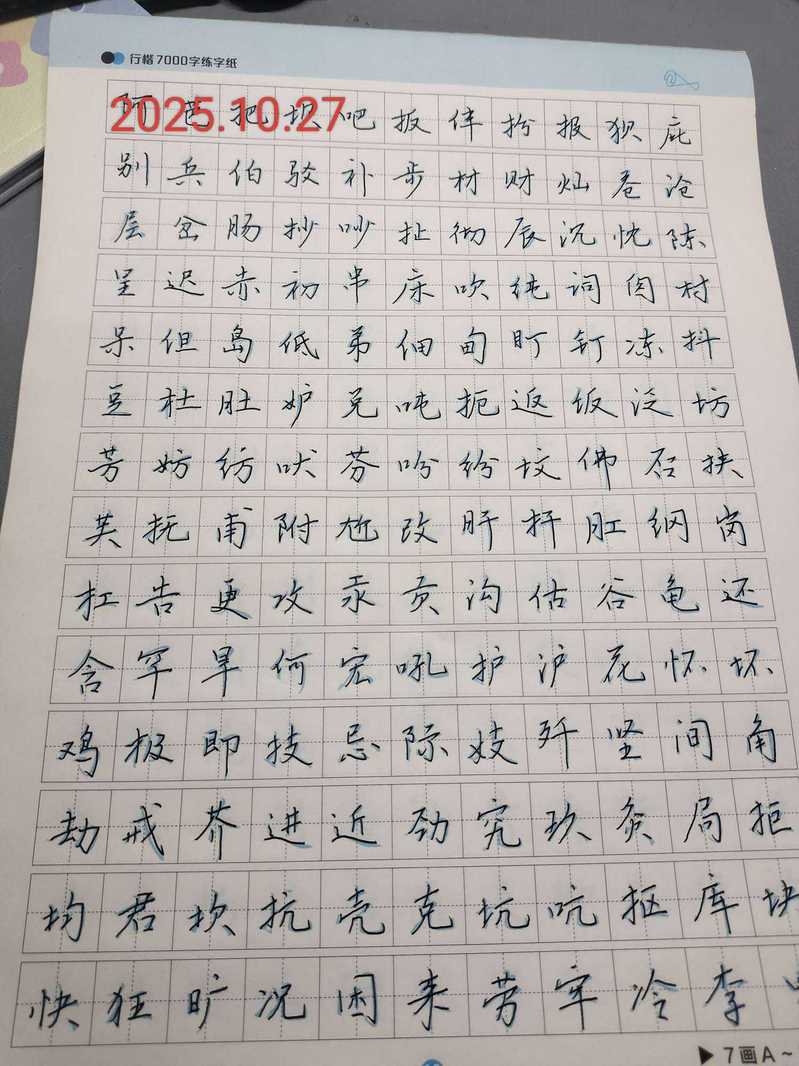 行楷7000字练字纸
2025.10.27
阿芭把坝吧扳伴扮报狈庇
别兵伯驳补步材财灿苍沧
层岔肠抄吵扯彻辰沉忱陈
呈迟赤初串床吹纯词囱村
呆但岛低弟佃甸盯钉冻抖
豆杜肚妒兑吨扼返饭泛坊
芳妨纺吠芬吩纷坟佛否扶
芙抚甫附尬改肝杆肛纲岗
杠告更攻汞贡沟估谷龟还
含罕旱何宏吼护沪花怀坏
鸡极即技忌际妓歼坚间角
劫戒芥进近劲究玖灸局拒
均君坎抗壳克坑吭抠库块
快狂旷况困来劳牢冷李
▶7画A~